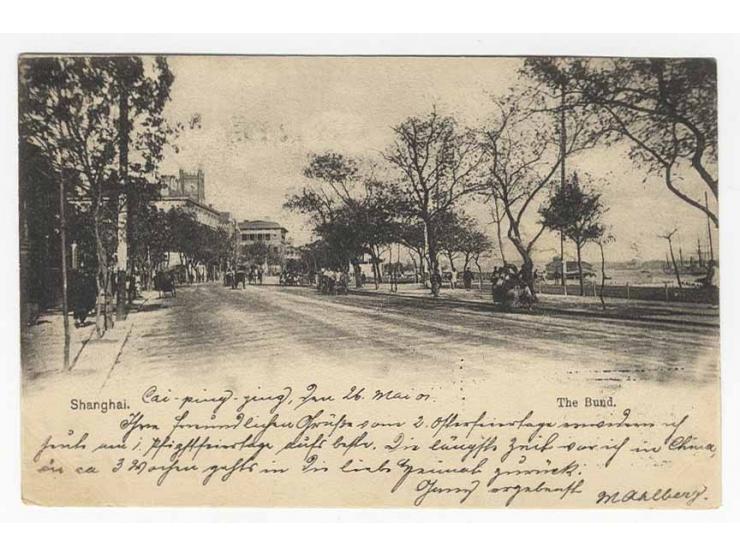 Shanghai.
The Bund.
Cai-ping-ging, den 26. Mai 01.
Ihre freundlichen Grüße vom 2. Osterfeiertage erwidern ich
heute am 1. Pfingstfeiertage aufs beste. Die längste Zeit war ich in China,
in ca 3 Wochen gehts in die liebe Heimat zurück.
Ganz ergebenst MAhlberg.